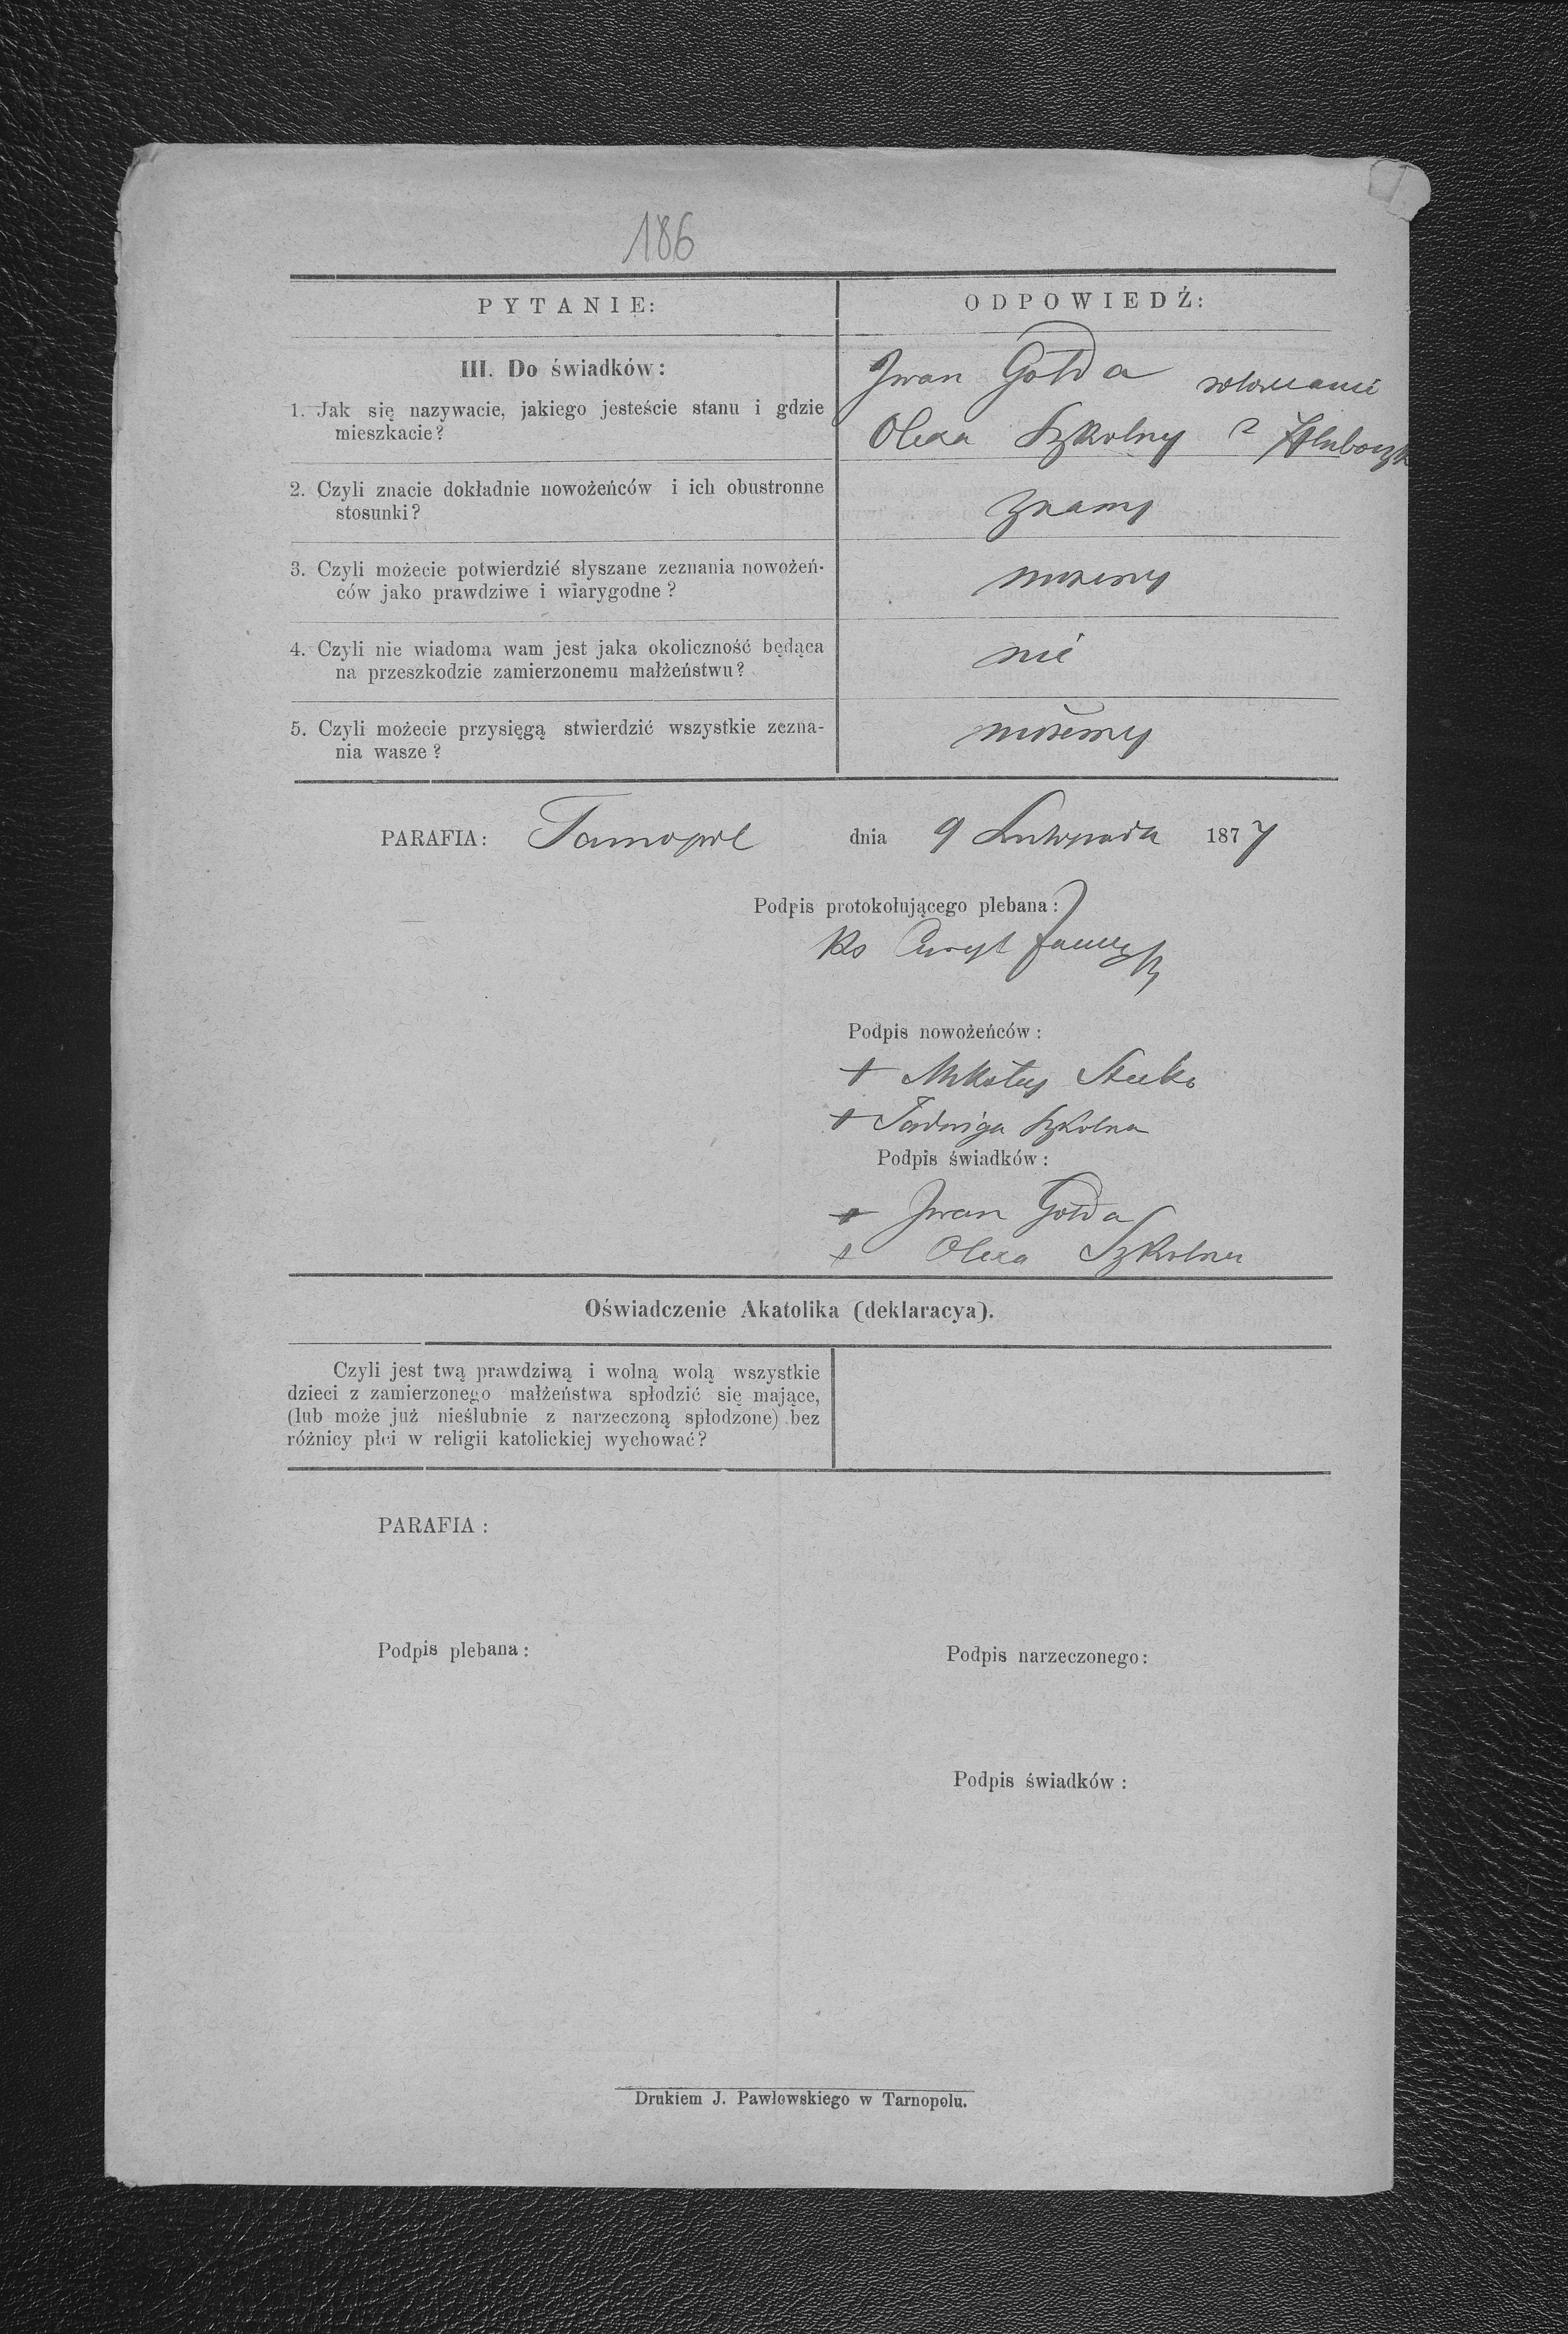 186
PYTANIE:
ODPOWIEDŹ:
III. Do świadków:
1. Jak się nazywacie, jakiego jesteście stanu i gdzie
mieszkacie?
Iwan Gołda
Olexa Szkolny z Hłuboczk
2. Czyli znacie dokładnie nowożeńców i ich obustronne
stosunki?
znamy
3. Czyli możecie potwierdzić słyszane zeznania nowożeń-
ców jako prawdziwe i wiarygodne?
możemy
4. Czyli nie wiadoma wam jest jaka okoliczność będąca
na przeszkodzie zamierzonemu małżeństwu?
nie
5. Czyli możecie przysięgą stwierdzić wszystkie zezna-
nia wasze?
możemy
PARAFIA: Tarnopol dnia 9 Listopada 1877
Podpis protokołującego plebana:
Ks
Podpis nowożeńców:
+ Mikołaj
+ Jadwiga Szkolna
Podpis świadków:
+ Iwan Gołda
+ Olexa Szkolny
Oświadczenie Akatolika (deklaracya).
Czyli jest twą prawdziwą i wolną wolą wszystkie
dzieci z zamierzonego małżeństwa spłodzić się mające,
(lub może już nieślubnie z narzeczoną spłodzone) bez
różnicy płci w religii katolickiej wychować?
PARAFIA:
Podpis plebana:
Podpis narzeczonego:
Podpis świadków:
Drukiem J. Pawłowskiego w Tarnopolu.